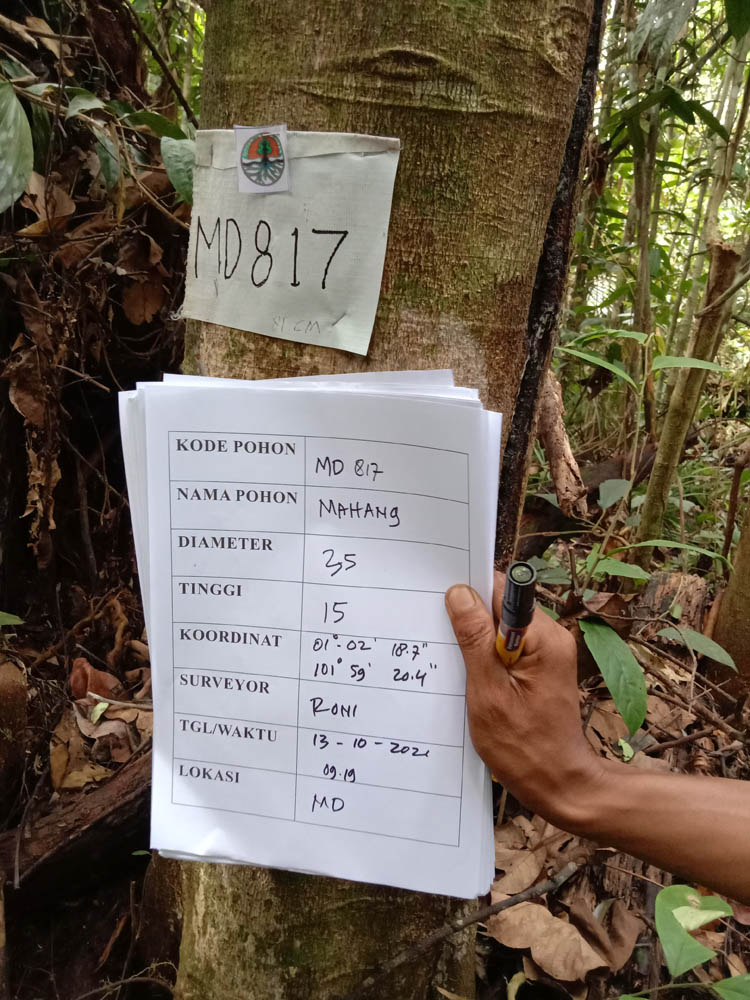 MD 817
KODE POHON MD 817
NAMA POHON MAHANG
DIAMETER 35
TINGGI 15
KOORDINAT 01°-02' 18.7"
101° 59' 20.4"
SURVEYOR RONI
TGL/WAKTU 13-10-2021
09.19
LOKASI MD